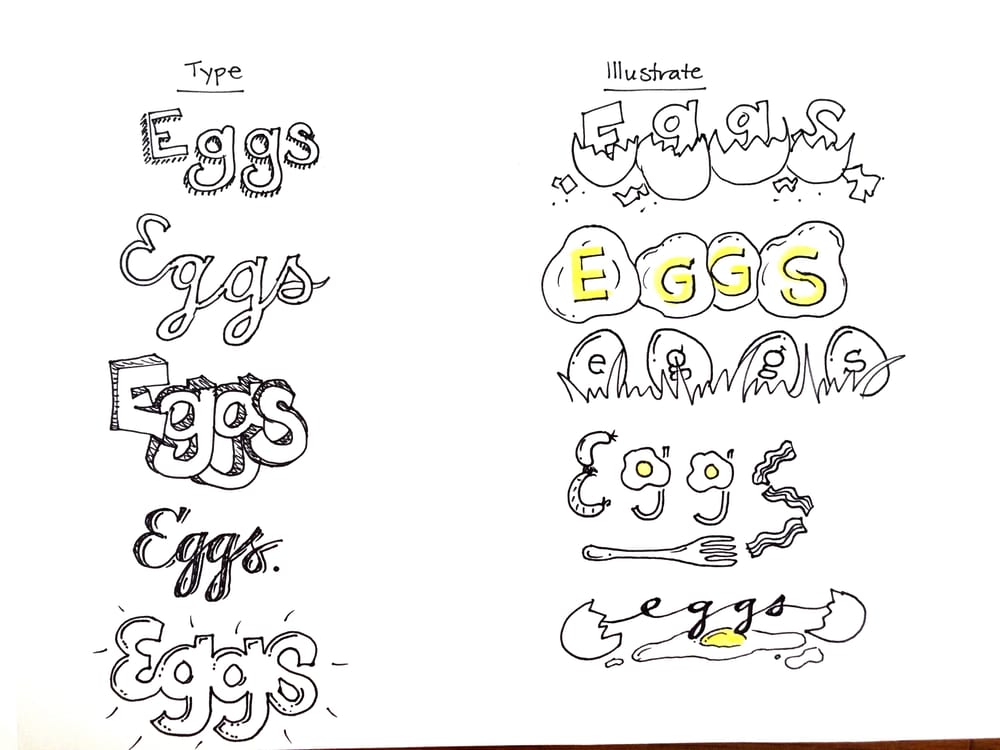 Type
Eggs
Eggs
Eggs
Eggs.
Eggs
Illustrate
Eggs
EGGS
eggs
Eggs
eggs